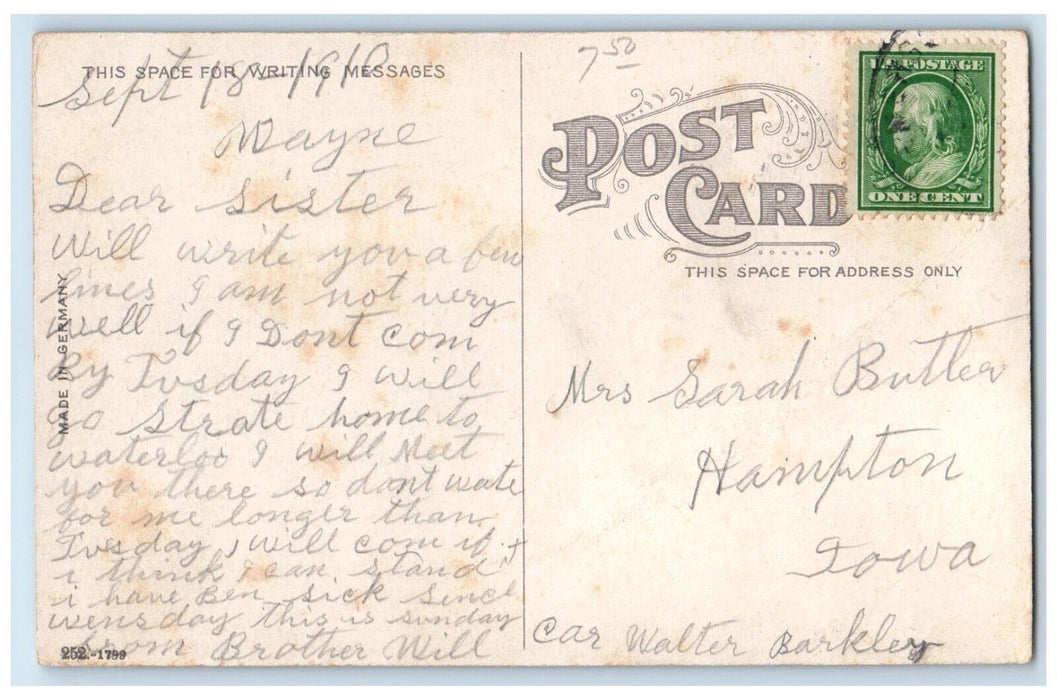 THIS SPACE FOR WRITING MESSAGES
Sept 18 - 1910
Wayne
Dear sister
will write you a few
lines I am not very
well if I Dont com
By Tusday I will
go strate home to
waterloo I will Meet
you there so dont wate
for me longer than
Tusday, will com if
i think I can stand it
i have Ben sick sence
wensday this is sunday
from Brother Will
MADE IN GERMANY
252.-1799
7 50
POST CARD
THIS SPACE FOR ADDRESS ONLY
U.S. POSTAGE
ONE CENT
Mrs Sarah Butler
Hampton
Iowa
Car Walter Barkley